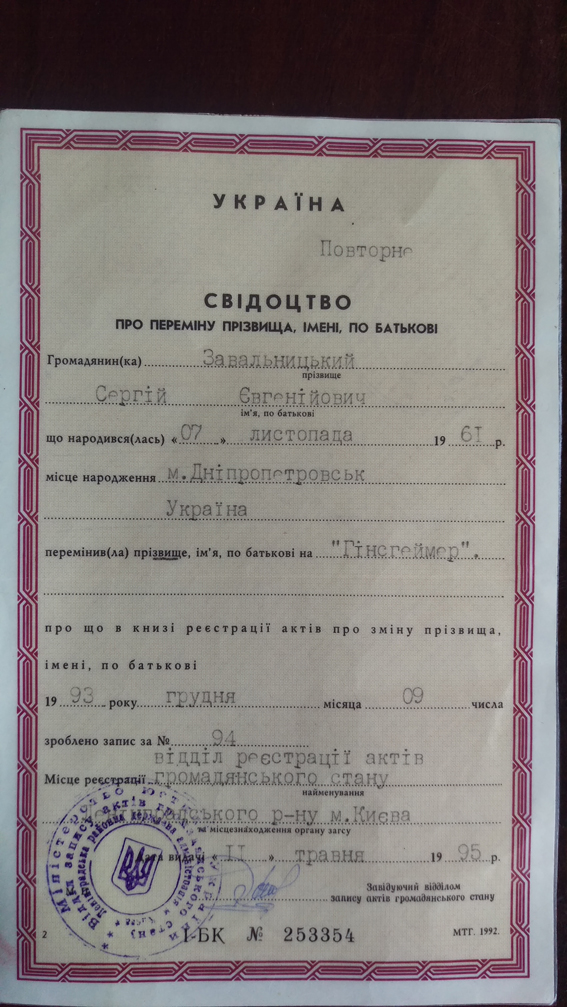 УКРАЇНА
Повторне
СВІДОЦТВО
ПРО ПЕРЕМІНУ ПРІЗВИЩА, ІМЕНІ, ПО БАТЬКОВІ
Громадянин(ка) Завальницький
прізвище
Сергій Євгенійович
ім'я, по батькові
що народився(лась) « 07 » листопада 19 61 р.
місце народження м.Дніпропетровськ
Україна
перемінив(ла) прізвище, ім'я, по батькові на "Гінсгеймер".
про що в книзі реєстрації актів про зміну прізвища,
імені, по батькові
19 93 року грудня місяця 09 числа
зроблено запис за № 94
відділ реєстрації актів
Місце реєстрації громадянського стану
найменування
р-ну м.Києва
та місцезнаходження органу загсу
Дата видачі « 11 » травня 19 95 р.
Завідуючий відділом
запису актів громадянського стану
2 І-БК № 253354 МТГ. 1992.